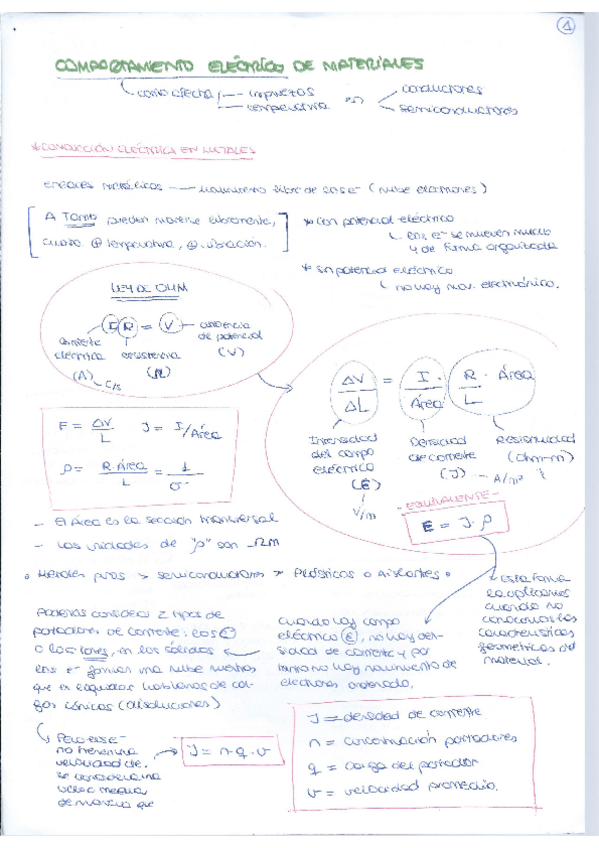 1
COMPORTAMIENTO ELÉCTRICO DE MATERIALES
como afecta impurezas temperatura => conductores semiconductores
* CONDUCCIÓN ELÉCTRICA EN METALES
enlaces metálicos — movimiento libre de los e⁻ (nube electrones)
A Tamb pueden moverse libremente,
cuanto ⊕ temperatura, ⊕ vibración.
* Con potencial eléctrico
los e⁻ se mueven mucho
y de forma organizada
* Sin potencial eléctrico
no hay mov. electrónico.
LEY DE OHM
I R = V
corriente eléctrica (A) - C/s
resistencia (Ω)
diferencia de potencial (V)
ΔV/ΔL = I/Área · R · Área/L
Intensidad del campo eléctrico (E)
V/m
Densidad de corriente (J) - A/m²
Resistividad (ohm-m)
E = ΔV/L J = I/Área
ρ = R·Área/L = 1/σ
- EQUIVALENTE -
E = J · ρ
- El Área es la sección transversal
- Las unidades de "ρ" son Ωm
• Metales puros > semiconductores > Plásticos o Aislantes •
Esta forma
la aplicamos
cuando no
conocemos las
características
geométricas del
material.
Podemos considerar 2 tipos de
portadores de corriente: los e⁻
o los iones, en los sólidos
los e⁻ forman una nube mientras
que en líquidos hablamos de car-
gas iónicas (disoluciones)
Cuando hay campo
eléctrico (E), no hay den-
sidad de corriente y por
tanto no hay movimiento de
electrones ordenado.
Pero ese e⁻
no tienen una
velocidad de.
se considera una
veloc media
de manera que
J = n · q · v
J = densidad de corriente
n = concentración portadores
q = carga del portador
v = velocidad promedio.